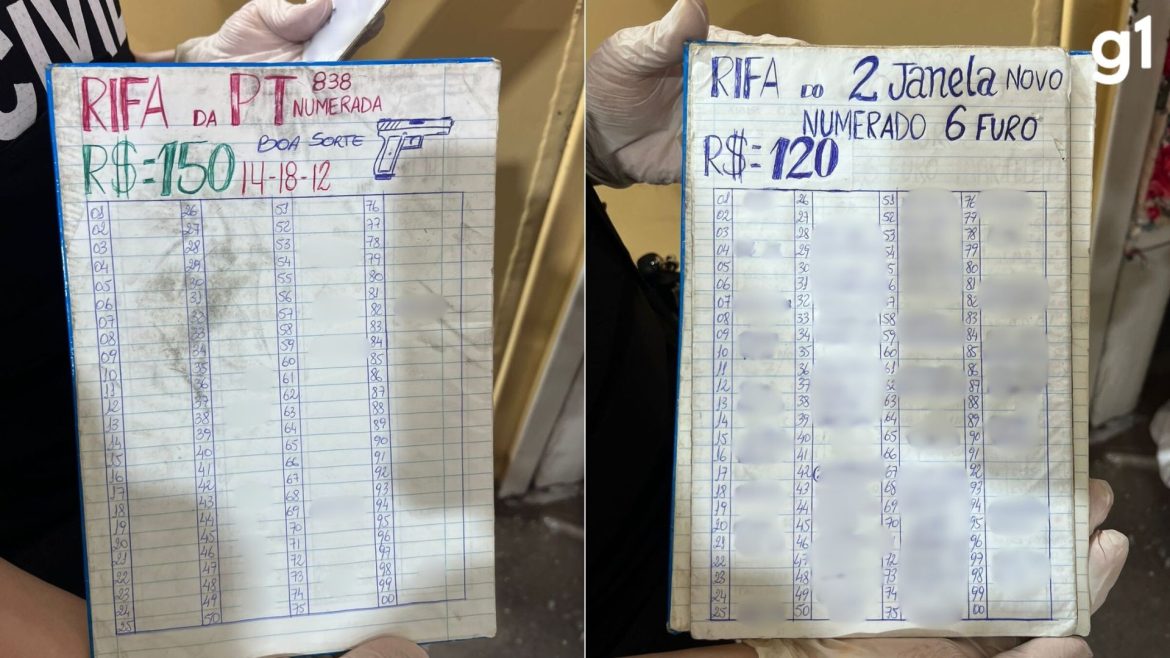 CIVIL
RIFA DA PT 838
NUMERADA
BOA SORTE
R$=150 14-18-12
01 26 51 76
02 27 52 77
03 28 53 78
04 29 54 79
05 30 55 80
06 31 56 81
07 32 57 82
08 33 58 83
09 34 59 84
10 35 60 85
11 36 61 86
12 37 62 87
13 38 63 88
14 39 64 89
15 40 65 90
16 41 66 91
17 42 67 92
18 43 68 93
19 44 69 94
20 45 70 95
21 46 71 96
22 47 72 97
23 48 73 98
24 49 74 99
25 50 75 00
g1
RIFA DO 2 Janela NOVO
NUMERADO 6 FURO
R$=120
01 26 51 76
02 27 52 77
03 28 53 78
04 29 54 79
05 30 5 80
06 31 6 81
07 32 7 82
08 33 58 83
09 34 59 84
10 35 60 85
11 36 61 86
12 37 62 87
13 38 63 88
14 39 64 89
15 40 65 90
16 41 66 91
17 42 67 92
18 43 68 93
19 44 69 94
20 45 70 95
21 46 96
22 47 72 97
23 48 73 98
24 49 74 99
25 50 75 00